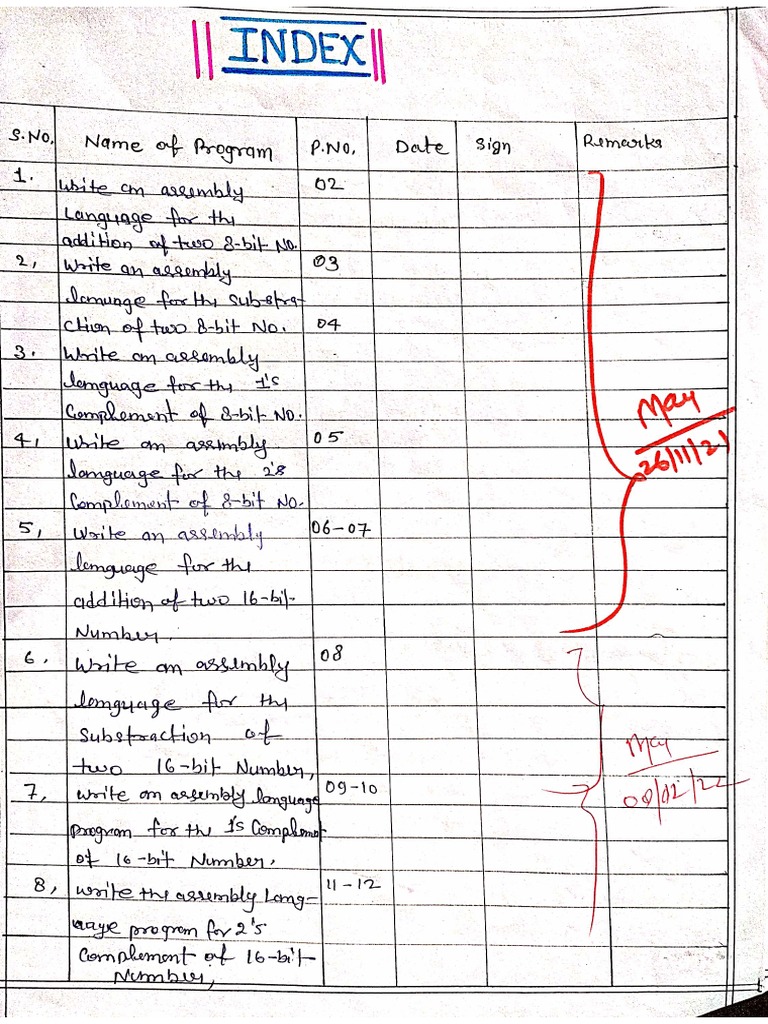 INDEX
S.No. Name of Program P.No. Date Sign Remarks
1. Write an assembly 02
Language for the
addition of two 8-bit No.
2, Write an assembly 03
lamunge for the Substra-
ction of two 8-bit No. 04
3. Write an assembly
language for the 1's
Complement of 8-bit No.
4, Write an assembly 05
language for the 2's
Complement of 8-bit No.
5, Write an assembly 06-07
language for the
addition of two 16-bit
Number.
6, Write an assembly 08
language for the
Substraction of
two 16-bit Number,
7, Write an assembly language 09-10
program for the 1's Complement
of 16-bit Number,
8, Write the assembly Lang- 11-12
uage program for 2's
Complement of 16-bit
Number,
26/11/21